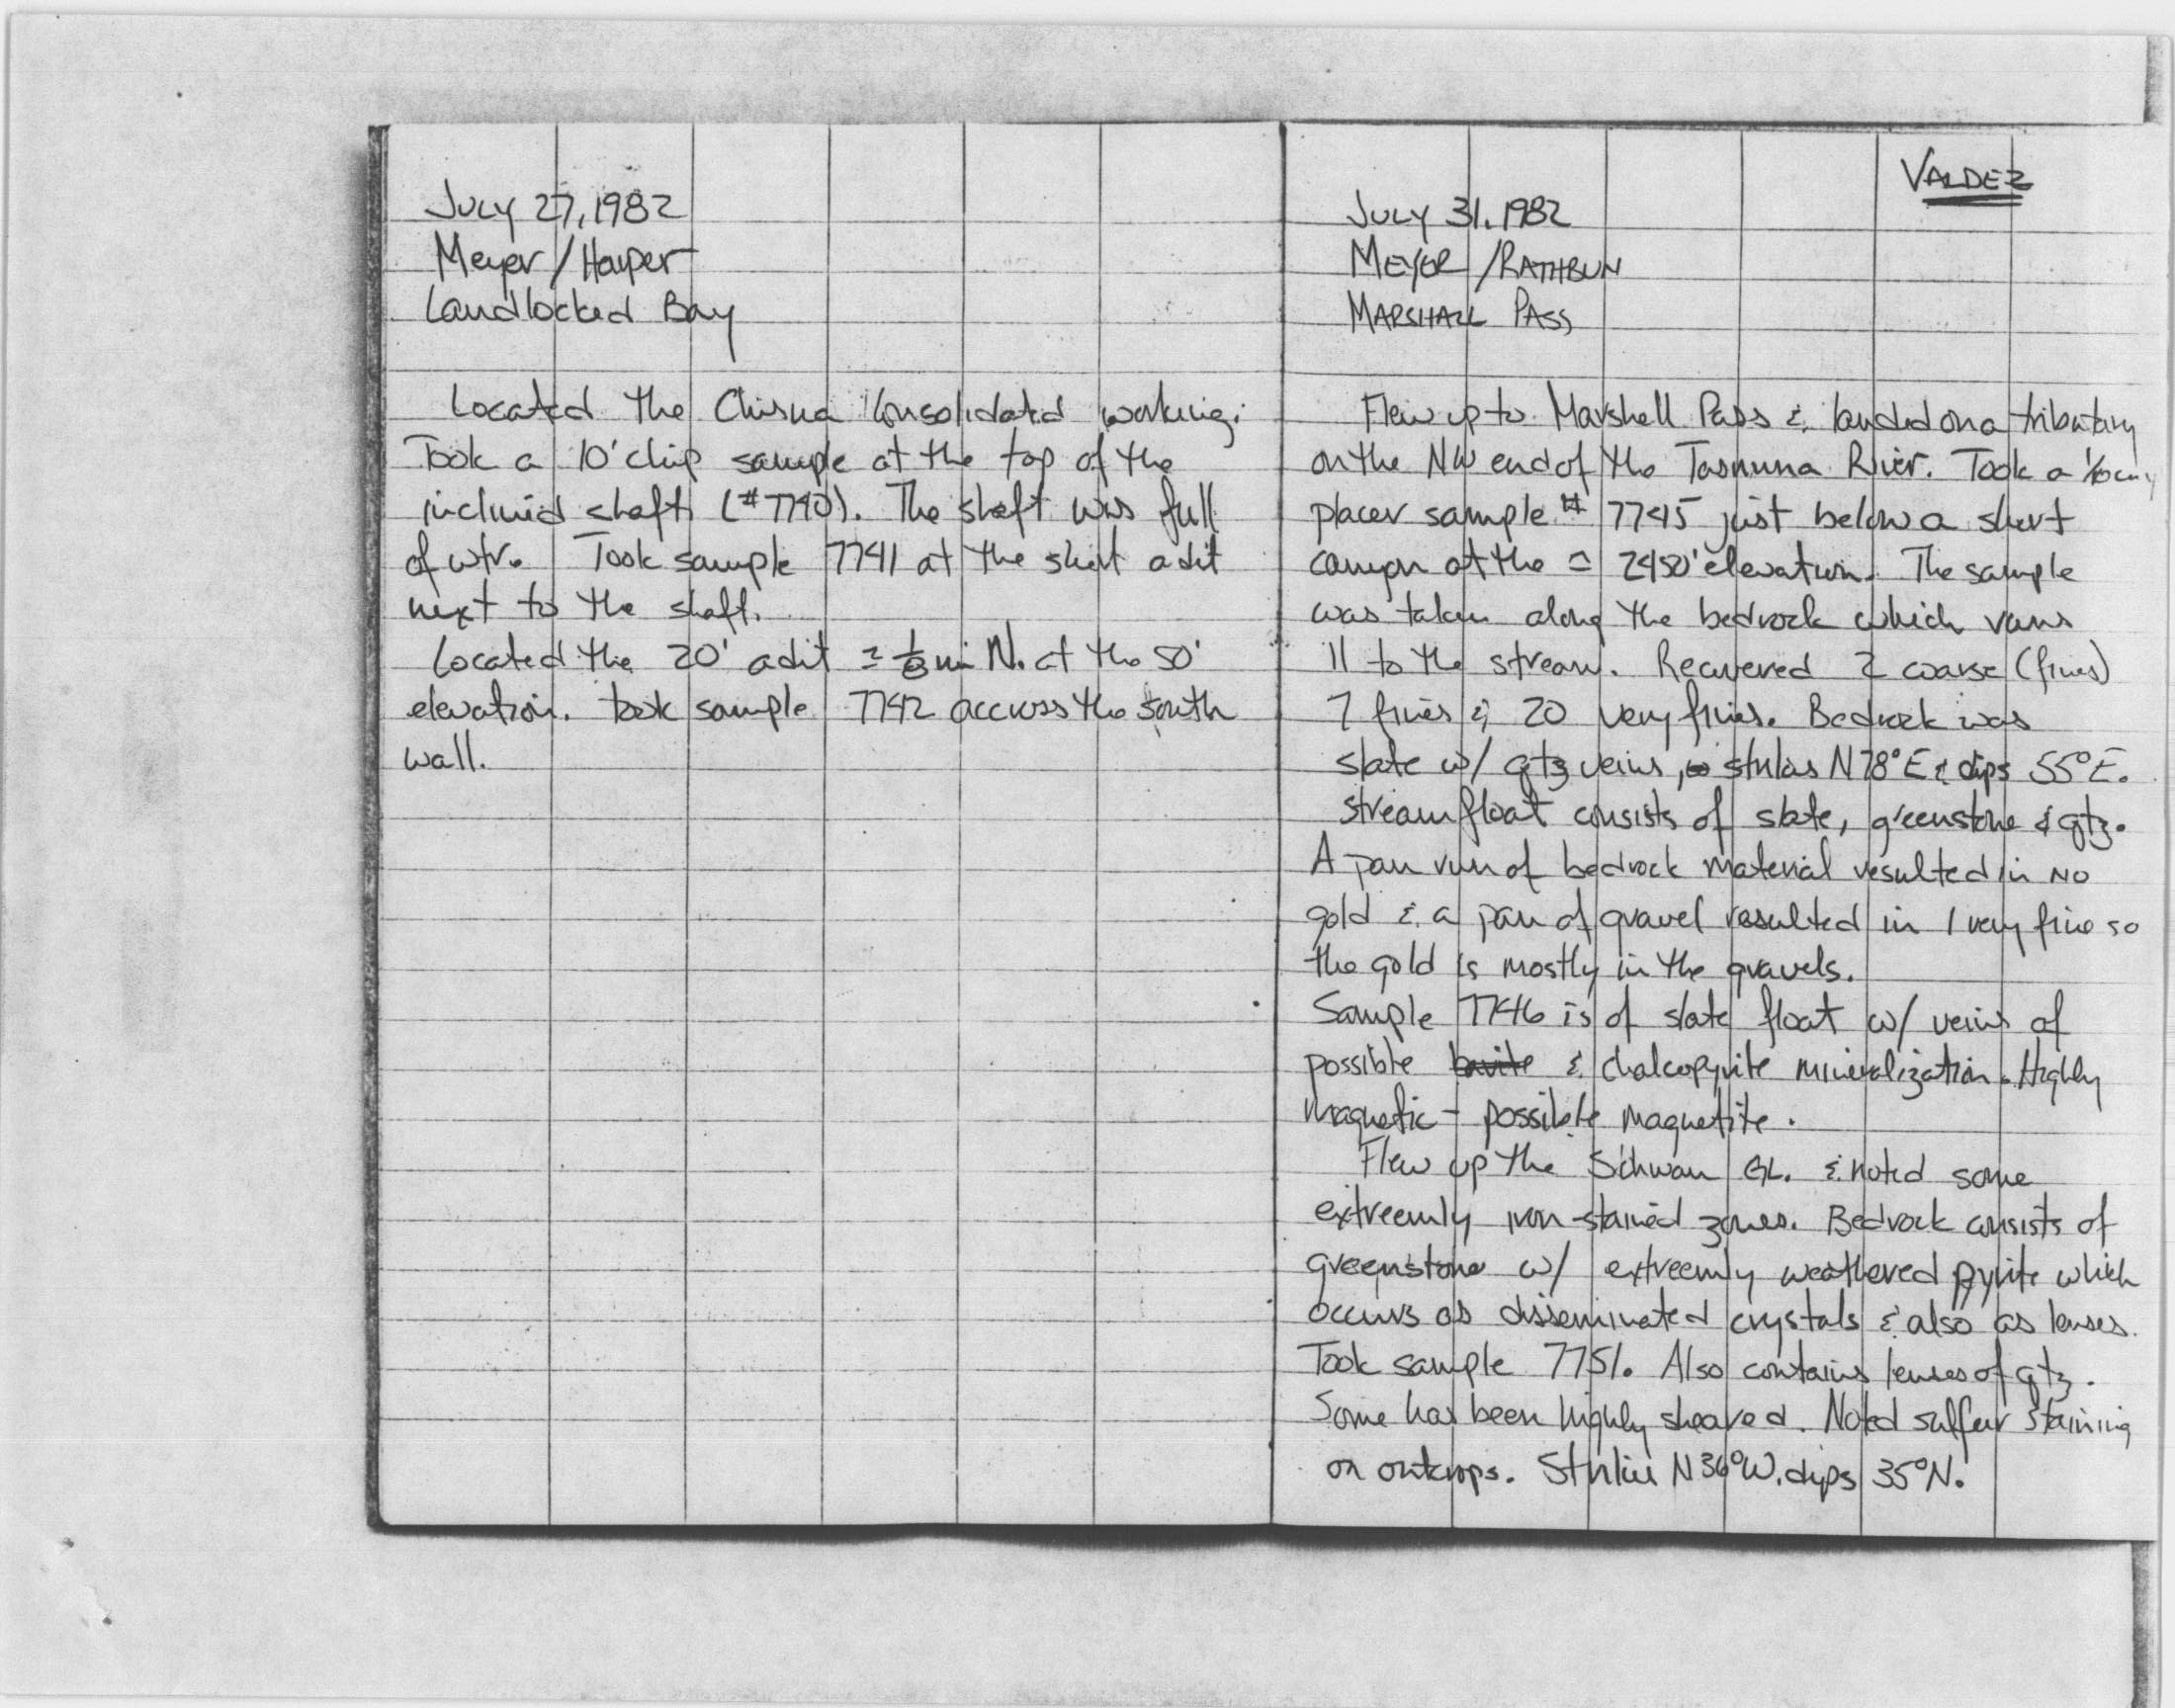 July 27, 1982
Meyer / Harper
Landlocked Bay
Located the Chisna Consolidated working.
Took a 10' chip sample at the top of the
inclined shaft (#7740). The shaft was full
of wtr. Took sample 7741 at the short adit
next to the shaft.
Located the 20' adit ≈ 1/8 mi N. at the 50'
elevation. took sample 7742 accross the south
wall.
VALDEZ
July 31, 1982
MEYER / RATHBUN
MARSHALL PASS
Flew up to Marshell Pass & landed on a tributary
on the NW end of the Tasnuna River. Took a
placer sample # 7745 just below a short
canyon at the ≈ 2450' elevation. The sample
was taken along the bedrock which runs
11 to the stream. Recovered 2 coarse (fines)
7 fines & 20 very fines. Bedrock was
slate w/ qtz veins, strikes N78°E & dips 55°E.
stream float consists of slate, greenstone & qtz.
A pan run of bedrock material resulted in NO
gold & a pan of gravel resulted in 1 very fine so
the gold is mostly in the gravels.
Sample 7746 is of slate float w/ veins of
possible & chalcopyrite mineralization. Highly
magnetic - possible magnetite.
Flew up the Schwan GL. & noted some
extreemly iron-stained zones. Bedrock consists of
greenstone w/ extreemly weathered pyrite which
occurs as disseminated crystals & also as lenses.
Took sample 7751. Also contains lenses of qtz.
Some has been highly sheared. Noted sulfur staining
on outcrops. Strike N36°W, dips 35°N.